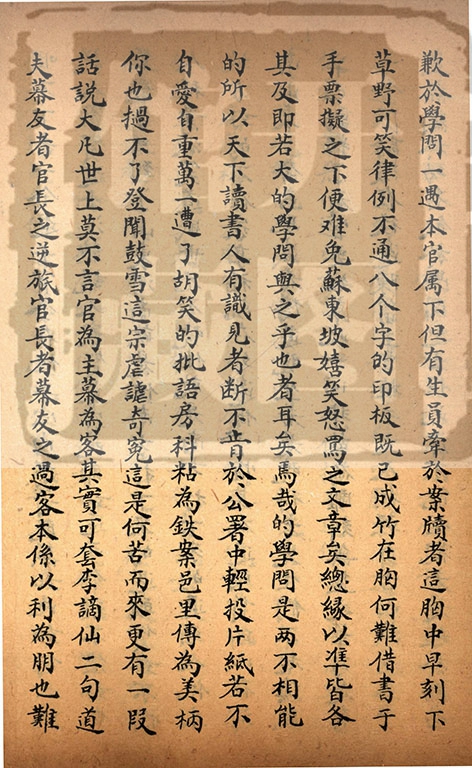 歉於學問一遇本官属下但有生員牽於案牘者這胸中早刻下
草野可笑律例不通八个字的印板既已成竹在胸何難借書于
手票擬之下便难免蘇東坡嬉笑怒罵之文章矣總緣以準皆各
其及即若大的學問與之乎也者耳矣焉哉的學問是两不相能
的所以天下讀書人有識見者断不肯於公署中輕投片紙若不
自愛自重萬一遭了胡笑的批語房科粘為鉄案邑里傳為美柄
你也撾不了登聞鼓雪這宗虐謔奇寃這是何苦而來更有一叚
話說大凡世上莫不言官為主幕為客其實可套李謫仙二句道
夫幕友者官長之逆旅官長者幕友之過客本係以利為朋也難